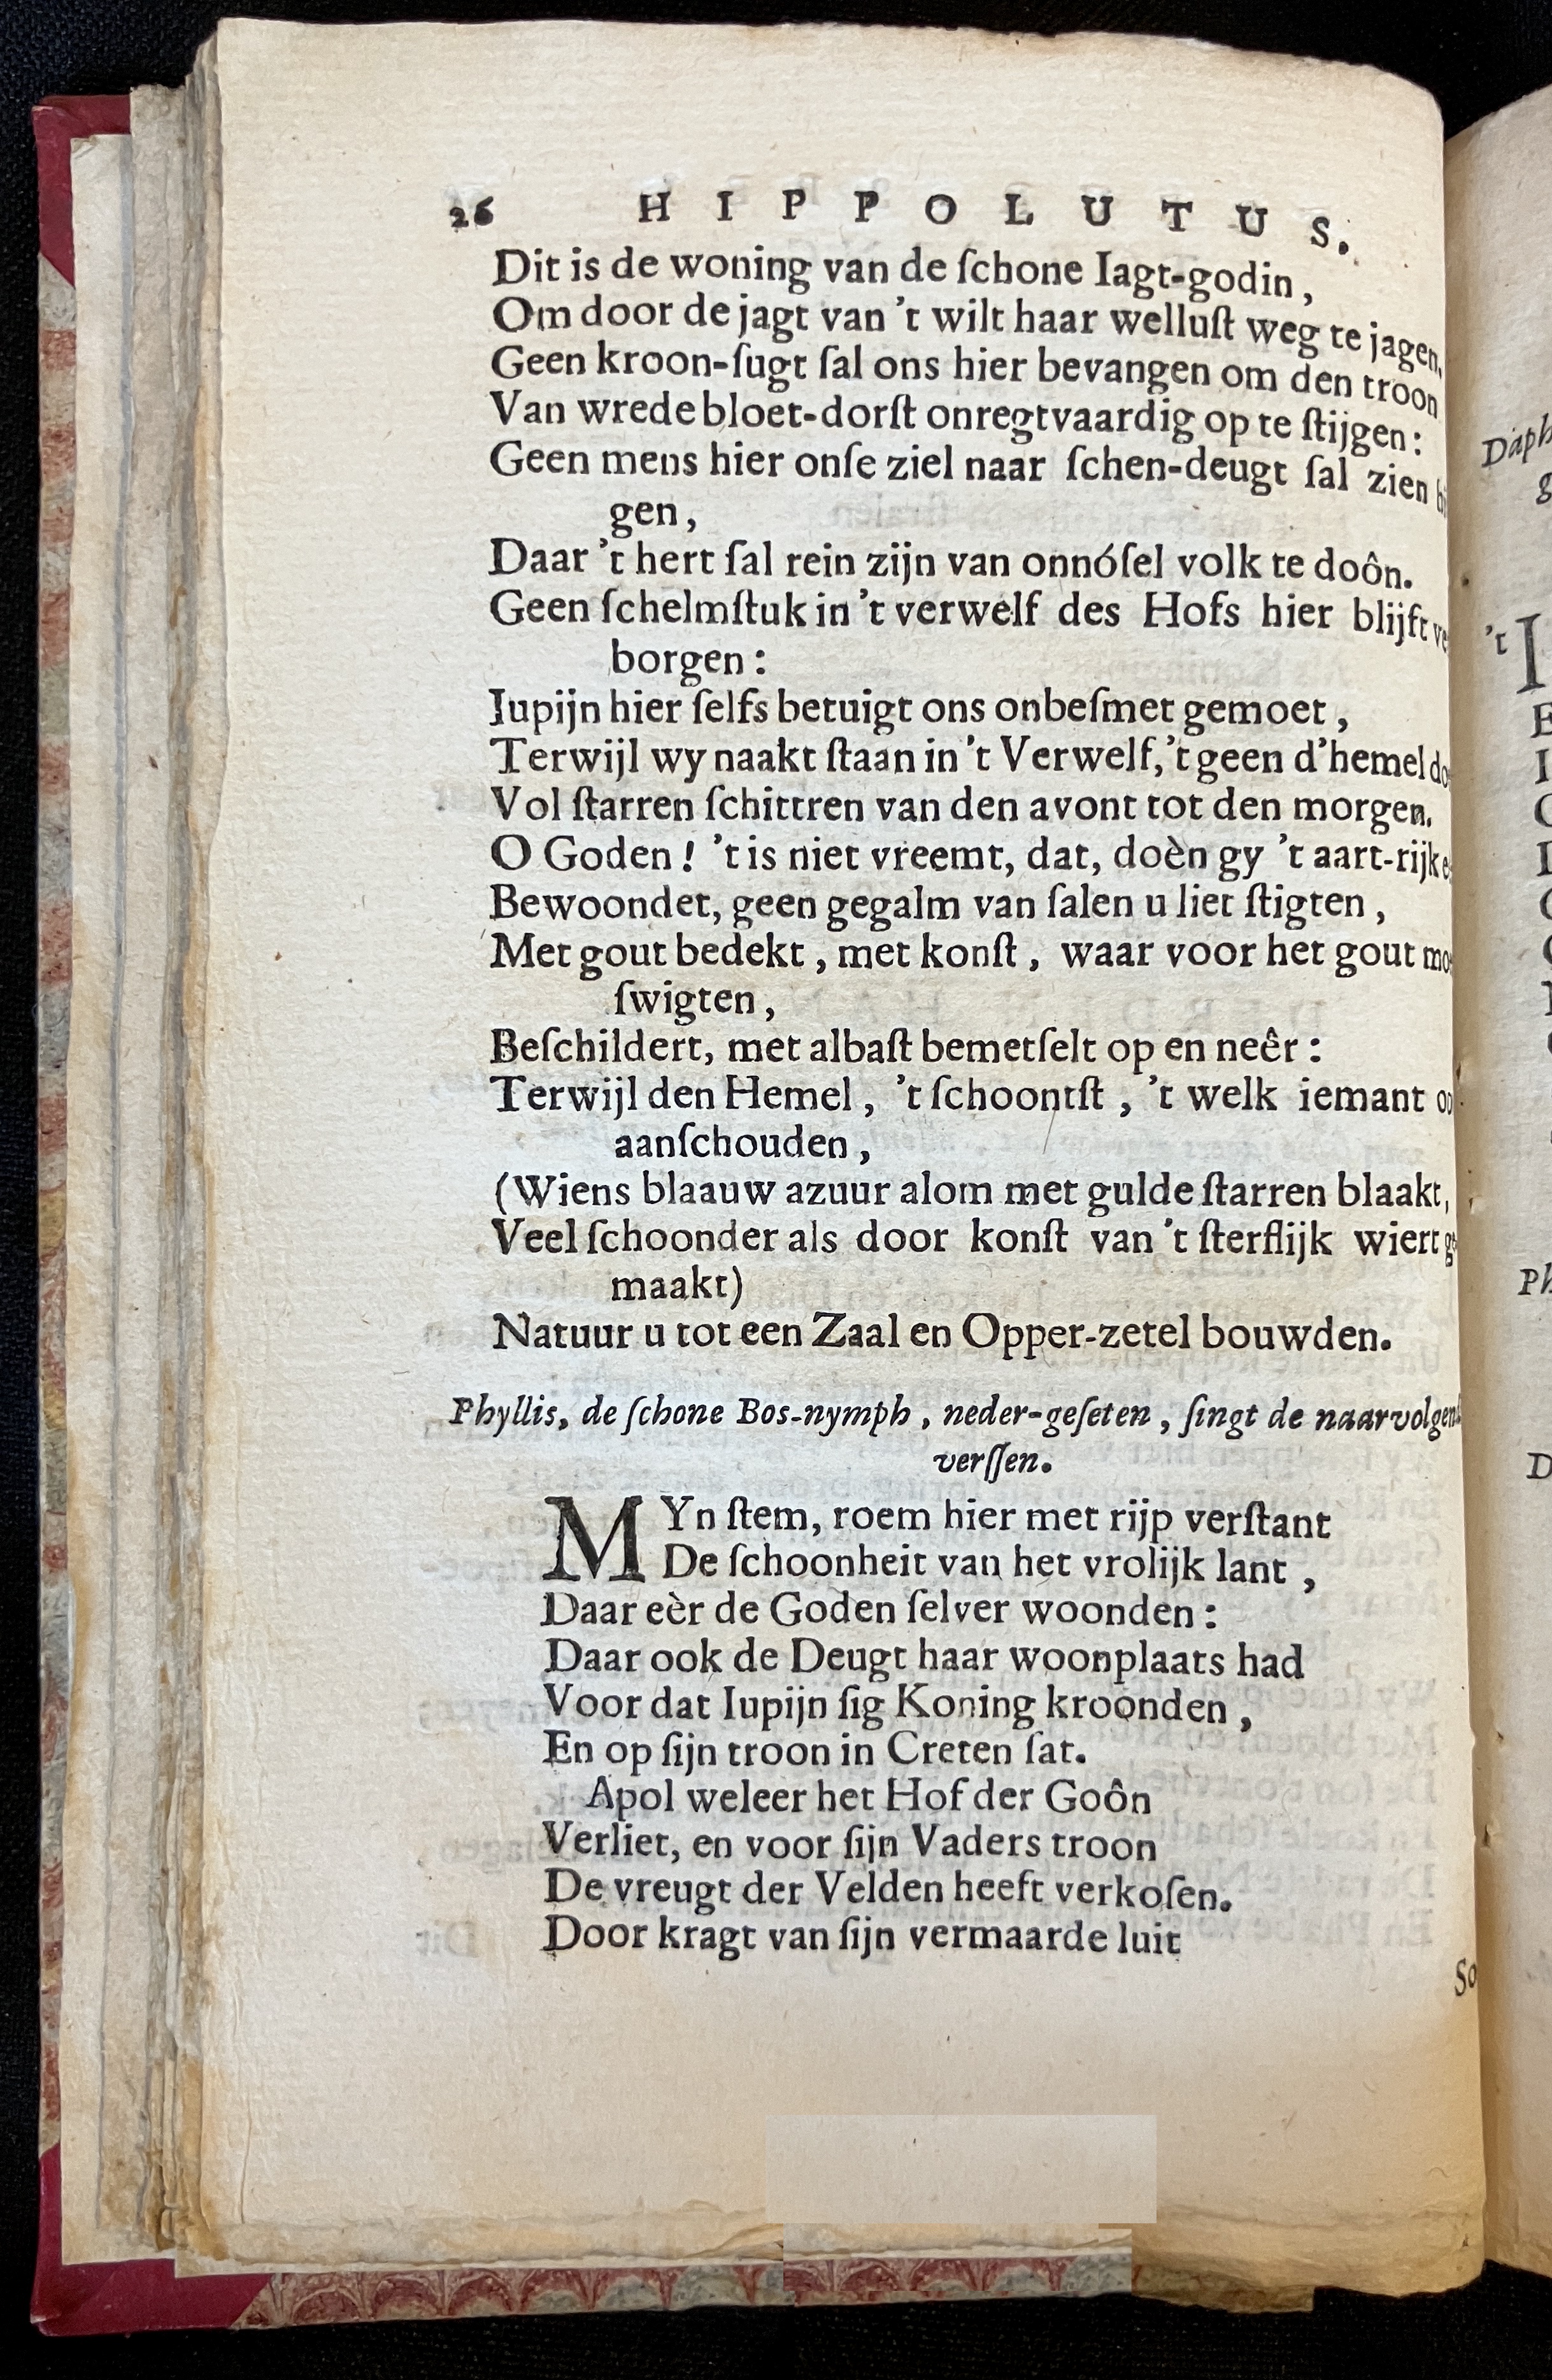 26 HIPPOLUTUS.
Dit is de woning van de ſchone Iagt-godin,
Om door de jagt van 't wilt haar welluſt weg te jagen,
Geen kroon-ſugt ſal ons hier bevangen om den troon
Van wrede bloet-dorſt onregtvaardig op te ſtijgen:
Geen mens hier onſe ziel naar ſchen-deugt ſal zien
gen,
Daar 't hert ſal rein zijn van onnóſel volk te doôn.
Geen ſchelmſtuk in 't verwelf des Hofs hier blijft ve
borgen:
Iupijn hier ſelfs betuigt ons onbeſmet gemoet,
Terwijl wy naakt ſtaan in 't Verwelf, 't geen d'hemel do
Vol ſtarren ſchittren van den avont tot den morgen.
O Goden! 't is niet vreemt, dat, doèn gy 't aart-rijk
Bewoondet, geen gegalm van ſalen u liet ſtigten,
Met gout bedekt, met konſt, waar voor het gout mo
ſwigten,
Beſchildert, met albaſt bemetſelt op en neêr:
Terwijl den Hemel, 't ſchoontſt, 't welk iemant
aanſchouden,
(Wiens blaauw azuur alom met gulde ſtarren blaakt,
Veel ſchoonder als door konſt van 't ſterflijk wiert
maakt)
Natuur u tot een Zaal en Opper-zetel bouwden.
Phyllis, de ſchone Bos-nymph, neder-geſeten, ſingt de naarvolgen
verſſen.
MYn ſtem, roem hier met rijp verſtant
De ſchoonheit van het vrolijk lant,
Daar eèr de Goden ſelver woonden:
Daar ook de Deugt haar woonplaats had
Voor dat Iupijn ſig Koning kroonden,
En op ſijn troon in Creten ſat.
Apol weleer het Hof der Goôn
Verliet, en voor ſijn Vaders troon
De vreugt der Velden heeft verkoſen.
Door kragt van ſijn vermaarde luit
So
Daph
g
't I
E
I
Ph
D